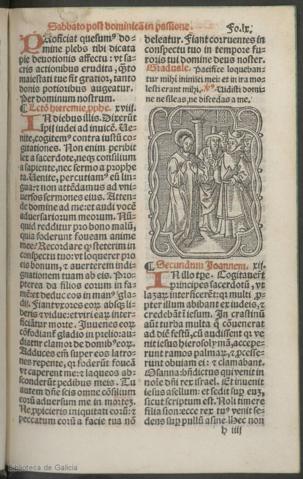 Sabbato post dominicā in passione. Fo.lx.
Proficiat quesumꝰ domine plebs tibi dicata
pie deuotionis affectu: vt sacris actionibus erudita, quāto
maiestati tue fit gratior, tanto
donis potioribus augeatur.
Per dominum nostrum.
Lectō hieremie pphe. xviij.
In diebus illis. Dixerūt
impij iudei ad inuicē. Uenite,
cogitemꝰ contra iustū cogitationes. Non enim peribit
lex a sacerdote, neqꝫ consilium
a sapiente, nec sermo a propheta. Uenite, percutiamꝰ eū lingua: et non attēdamus ad vniuersos sermones eius. Attende domine ad me: et audi vocē
aduersariorum meorum. Nūquid redditur pro bono malū,
quia foderunt foueam anime
mee? Recordare ꝙ steterim in
conspectu tuo: vt loquerer pro
eis bonum, et auerterem indignationem tuam ab eis. Propterea da filios eorum in famē: et deduc eos in manꝰ gladij.
Fiant vxores eorū absqꝫ liberis et vidue: et viri earū interficiātur morte. Iuuenes eorū
cōfodiant gladio in prelio: audiatur clamor de domibꝰ eorū.
Adduces em̄ super eos latrones repente, qꝛ foderūt foueā
vt caperent me: et laqueos absconderūt pedibus meis. Tu
autem dn̄e scis omne cōsilium
eorū aduersum me in mortē.
Ne ppicieris iniquitati eorū: et
peccatum eorū a facie tua nō
deleatur. Fiant corruentes in
conspectu tuo in tempore furoris tui domine deus noster.
Graduale. Pacifice loquebantur mihi inimici mei: et in ira molesti erant mihi. Uidisti domine ne sileas, ne discedas a me.
Secundum Joannem. xij.
In illo tpe. Cogitauerūt
principes sacerdotū, vt
lazarū interficerēt: qꝛ multi ppter illum abibant ex iudeis, et
credebāt in iesum. In crastinū
aūt turba multa q̄ cōuenerat
ad diē festū, cū audissent qꝛ venit iesus hierosolymā, acceperunt ramos palmarū, et pcesserunt obuiam ei: et clamabant.
Osanna: bn̄dictus qui venit in
nomine dn̄i rex israel. Et inuenit
iesus asellum: et sedit sup eū,
sicut scriptum est. Noli timere
filia sion: ecce rex tuꝰ venit sedens sup pullū asine. Hec non
h iiij
Biblioteca de Galicia